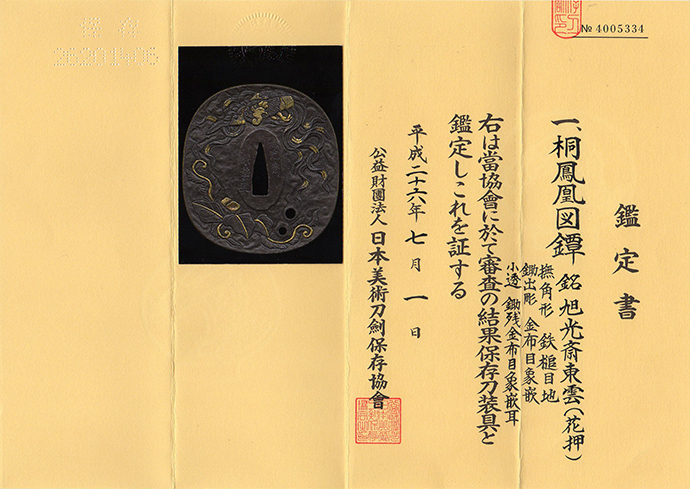 № 4005334
鑑定書
一、桐鳳凰図鐔 銘 旭光斎東雲(花押)
撫角形 鉄槌目地
鋤出彫 金布目象嵌
小透 鋤残金布目象嵌耳
右は當協會に於て審査の結果保存刀装具と
鑑定しこれを証する
平成二十六年七月一日
公益財團法人 日本美術刀劍保存協會